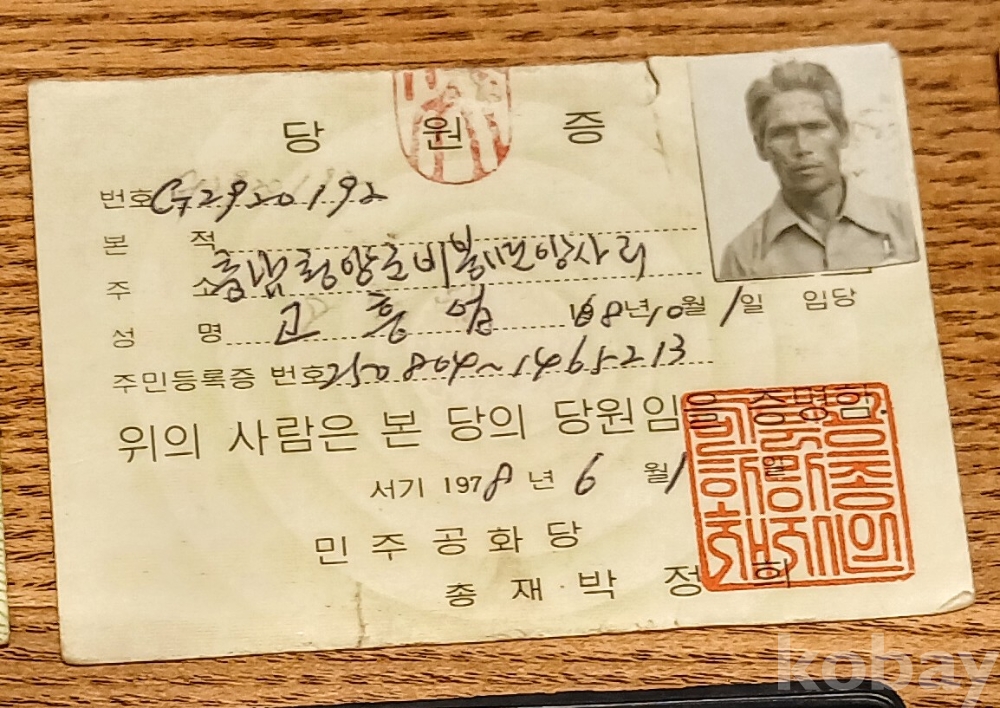 당 원 증
번호 2920192
본 적
주 소 충남 청양군 비봉면 양사리
성 명 고 흥 68년 10월 1일 입당
주민등록증 번호 250804~1465213
위의 사람은 본 당의 당원임을 증명함.
서기 1978년 6월 1일
민주공화당
총재 박정희
kobay